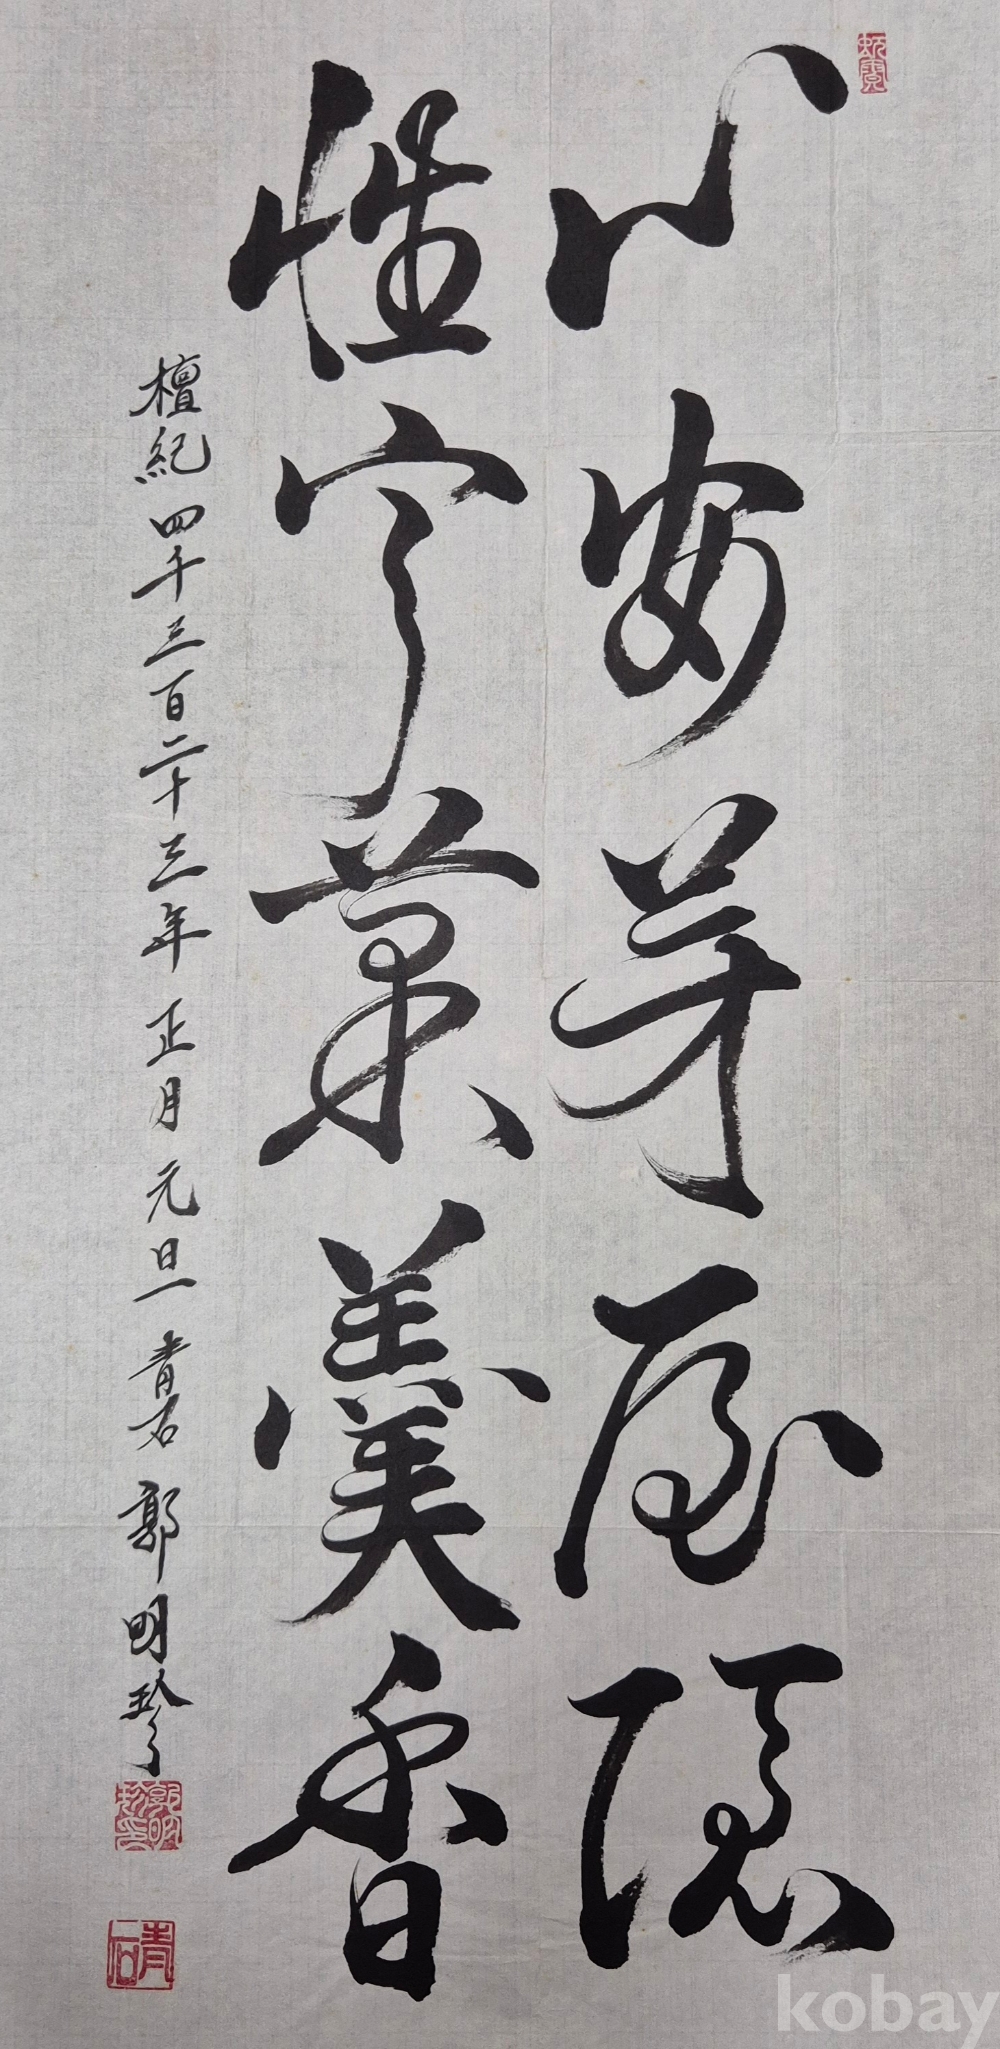 心安茅屋穩
性定菜羹香
檀紀四千三百二十三年 正月 元旦 青石 郭明珍
青石
kobay